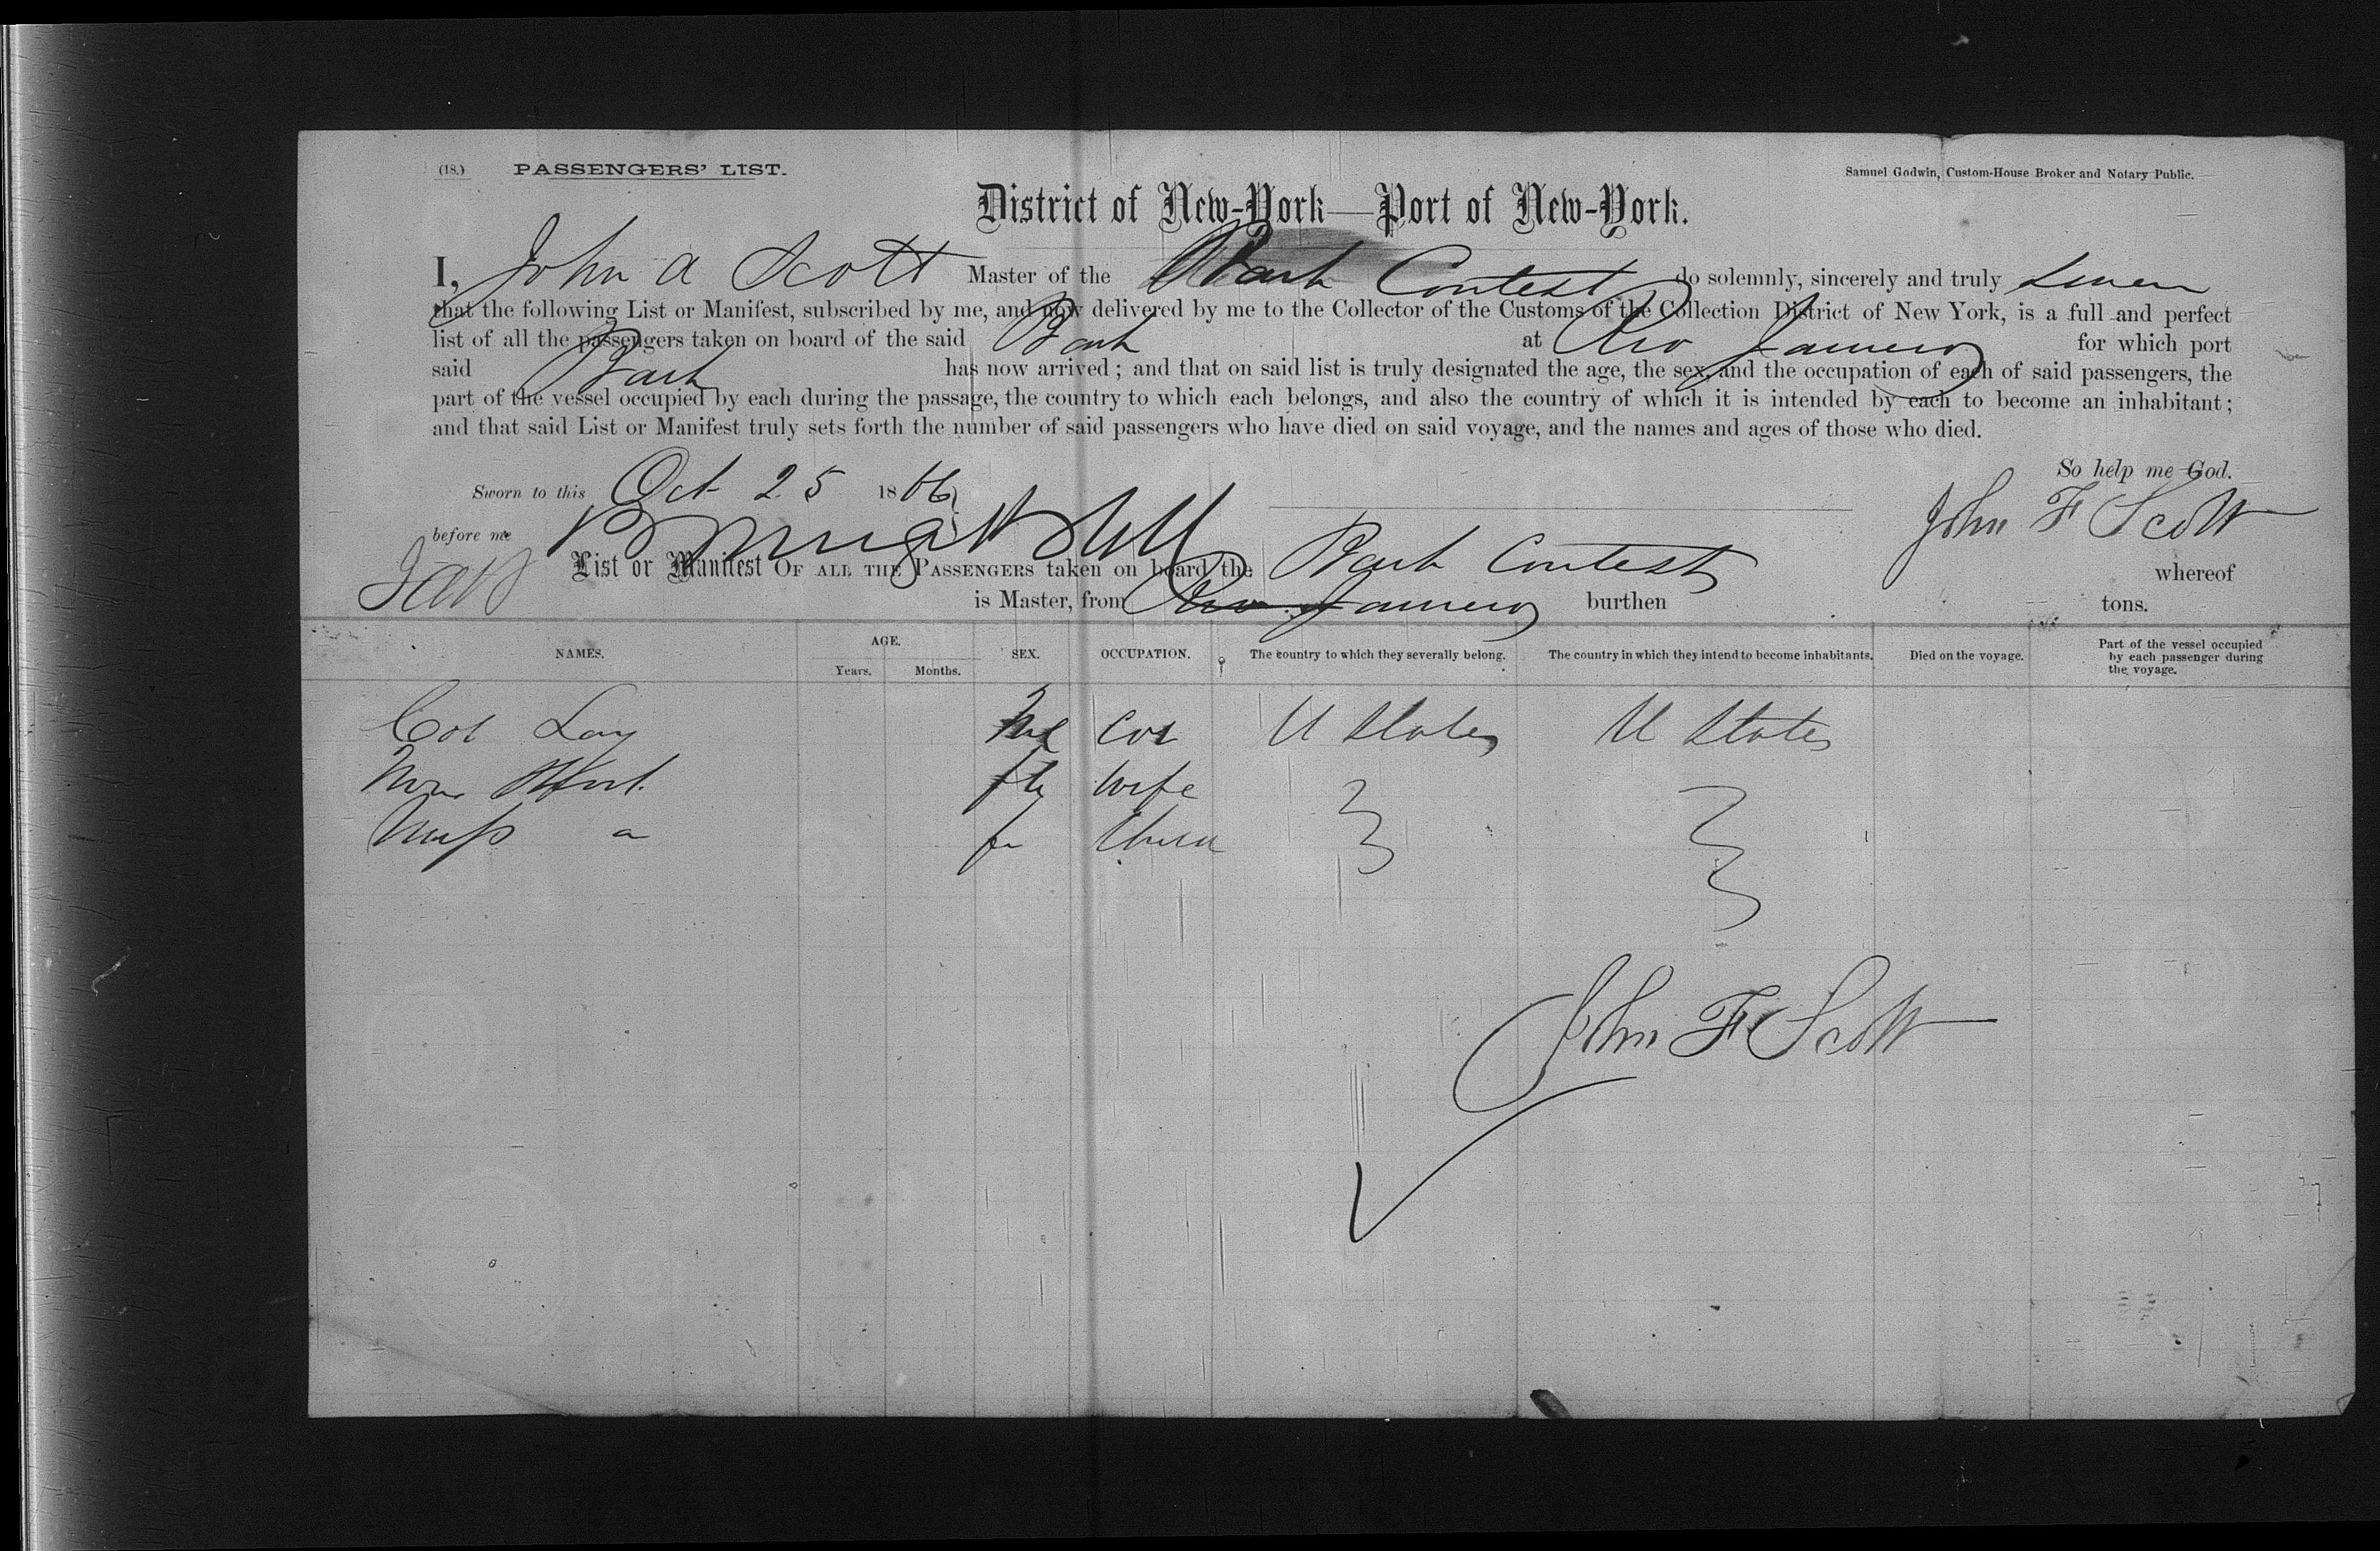 (18.) PASSENGERS' LIST.
Samuel Godwin, Custom-House Broker and Notary Public.
District of New-York—Port of New-York.
I, John A Scott Master of the Bark Contest do solemnly, sincerely and truly swear
that the following List or Manifest, subscribed by me, and now delivered by me to the Collector of the Customs of the Collection District of New York, is a full and perfect
list of all the passengers taken on board of the said Bark at Rio Janeiro for which port
said Bark has now arrived; and that on said list is truly designated the age, the sex, and the occupation of each of said passengers, the
part of the vessel occupied by each during the passage, the country to which each belongs, and also the country of which it is intended by each to become an inhabitant;
and that said List or Manifest truly sets forth the number of said passengers who have died on said voyage, and the names and ages of those who died.
So help me God.
Sworn to this Oct 25 1866
before me
John F Scott
List or Manifest OF ALL THE PASSENGERS taken on board the Bark Contest whereof
is Master, from Rio Janeiro burthen tons.
NAMES. AGE. Years. Months. SEX. OCCUPATION. The country to which they severally belong. The country in which they intend to become inhabitants. Died on the voyage. Part of the vessel occupied by each passenger during the voyage.
Col Col U States U States
Wife
Miss
John F Scott